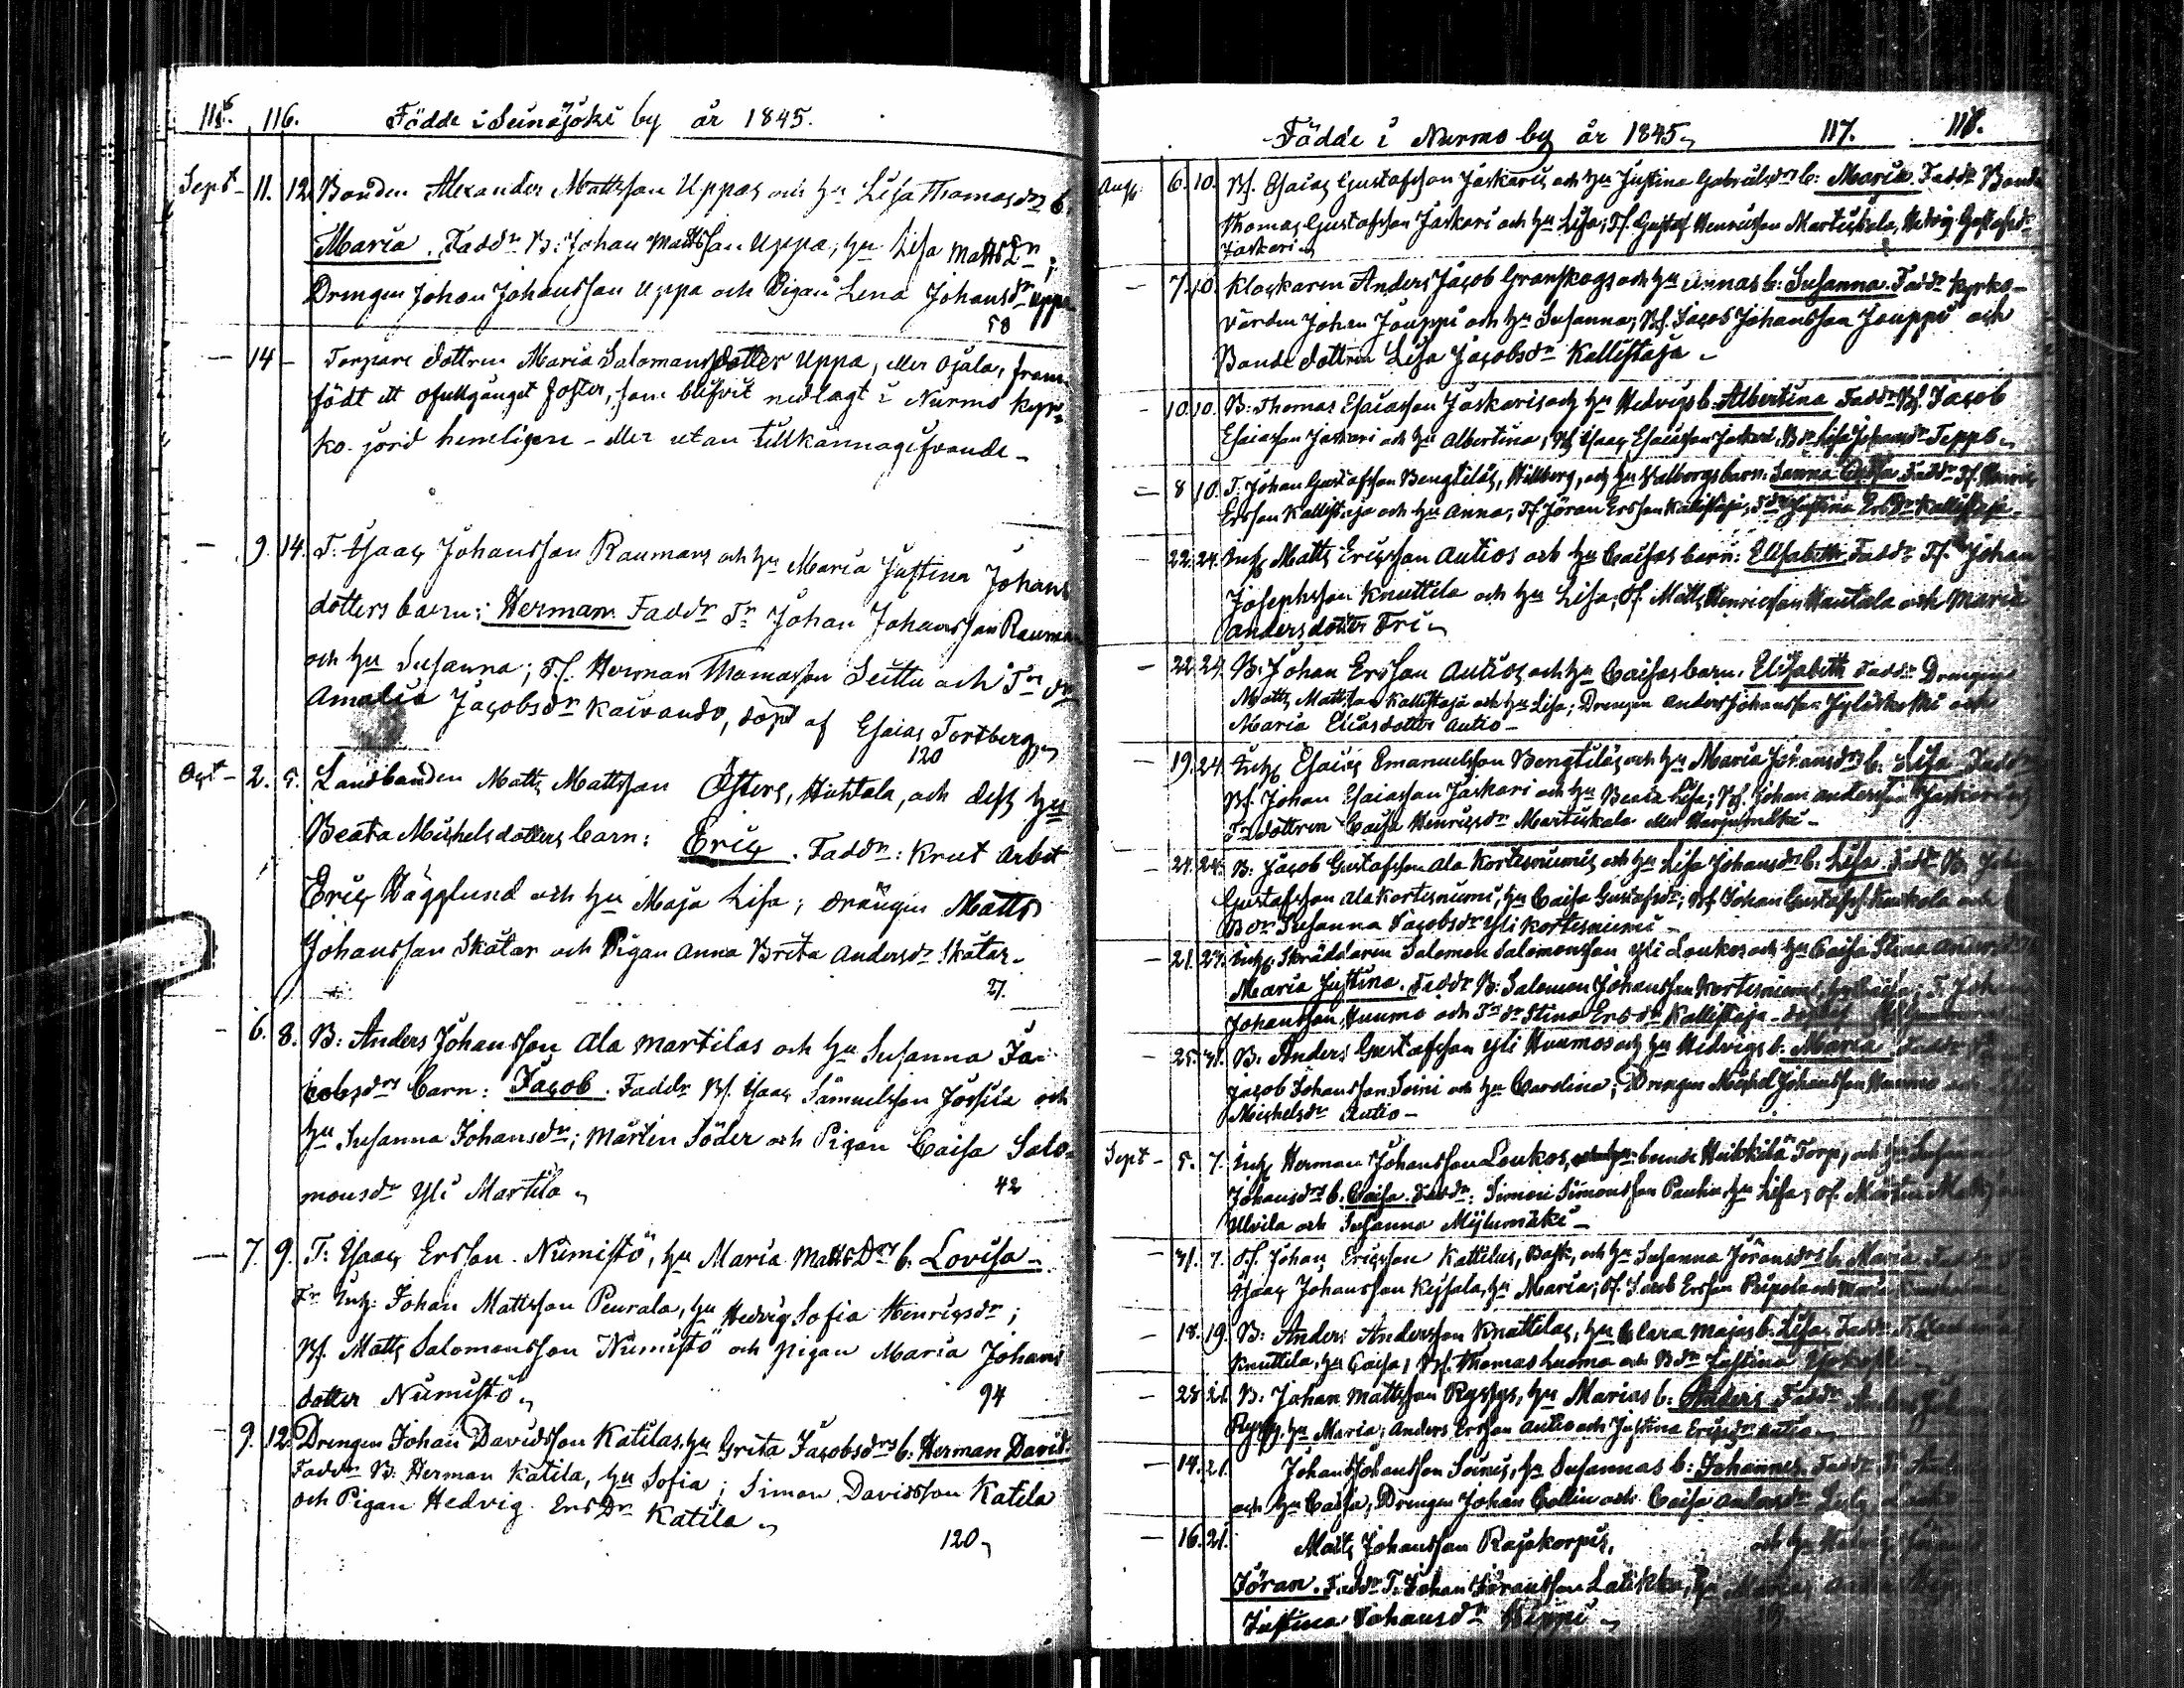 115. 116. Födde i Seinäjoki by år 1845.
Sept - 11. 12. Bonden Alexander Mattsson Uppas och hu Lisa Thomasdrs b.
Maria. Faddr B: Johan Mattsson Uppa, hu Lisa MattsDr;
Drengen Johan Johansson Uppa och Pigan Lena Johansdr Uppa
58
— 14 — Torpare dottren Maria Salomonsdotter Uppa, eller Ojala, fram-
födt ett ofullgånget foster, som blifvit nedlagt i Nurmo kyr-
ko-jord hemligen - eller utan tillkännagifvande -
— 9. 14. T. Isaac Johansson Raumans och hu Maria Justina Johans
dotters barn: Herman. Faddr Tr Johan Johansson Rauma
och hu Susanna; Tf. Herman Thomasson Seittu och Trdr
Amalia Jacobsdr Kaivando, döpt af Esaias Tortberg
120
Oct - 2. 5. Landbonden Matts Mattsson Östers, Huhtala, och dess hu
Beata Michelsdotters barn: Eric. Faddr: Krut Arbet
Eric Hägglund och hu Maja Lisa; drängen Matts
Johansson Skatar och Pigan Anna Brita Andersdr Skatar.
21.
- 6. 8. B: Anders Johansson Ala Martilas och hu Susanna Ja-
cobsdrs barn: Jacob. Faddr Bf. Isaac Samuelsson Jossila och
hu Susanna Johansdr; Mårten Söder och Pigan Caisa Salo-
monsdr Yli Martila
42
— 7. 9. T: Isaac Ersson Niemistö, hu Maria MattsDrs b. Lovisa -
Fr Inh: Johan Mattsson Peurala, hu Hedvig Sofia Henricsdr;
Bf. Matts Salomonsson Niemistö och pigan Maria Johans
dotter Niemistö
94
9. 12. Drengen Johan Davidsson Katilas, hu Greta Jacobsdrs b: Herman David.
Faddr B: Herman Katila, hu Sofia; Simon Davidsson Katila
och Pigan Hedvig ErsDr Katila
120
Födde i Nurmo by år 1845 117. 118.
Aug. 6. 10. Bf. Esaias Gustafsson Jaskaris och hu Justina Gabrielsdrs b: Maria. Faddr Bonde
Thomas Gustafsson Jaskari och hu Lisa; Tf. Gustaf Henricsson Martiskala, Hedvig Gustafsdr
Jaskari
— 7. 10. Klockaren Anders Jacob Granskogs och hu Annas b: Susanna. Faddr Kyrko-
värden Johan Jouppi och hu Susanna; Bf. Jacob Johansson Jouppi och
Bonde dottren Lisa Jacobsdr Kallistaja -
- 10. 10. B: Thomas Esaiasson Jaskaris och hu Hedvigs b: Albertina Faddr Bf. Jacob
Esaiasson Jaskari och hu Albertina; Bf Isaac Esaiasson Jaskari, Bdr Lisa Johansdr Teppo
— 8 10. T. Johan Gustafsson Bengtiläs, Hillberg, och hu Valborgs barn: Faddr Tf. Henric
Ersson Kallistaja och hu Anna; Tf Jöran Ersson Kallistaja, Justina ErsDr Kallistaja.
- 22. 24. Inh. Matts Ericsson Autios och hu Caisas barn: Elisabeth Faddr Tf. Johan
Josephsson Knuttila och hu Lisa; Matts Henricsson Hautala och Maria
Andersdotter Fri
— 22. 24. B. Johan Ersson Autios och hu Caisas barn. Elisabeth Faddr Drengen
Matts Mattsson Kallistaja och hu Lisa; Drengen Anders Johansson och
Maria Eliasdotter Autio -
— 19. 24. Inh. Esaias Emanuelsson Bengtiläs och hu Maria Johansdrs b: Lisa Faddr
Bf. Johan Esaiasson Jaskari och hu Beata Lisa; Bf. Johan Andersson Jaskari
Tr dottren Caisa Henricsdr Martiskala eller Harjunmäki -
— 24. 24. B: Jacob Gustafsson Ala Kortesniemis och hu Lisa Johansdrs b: Lisa Faddr B. Johan
Gustafsson Ala Kortesniemi, hu Caisa Gustafsdr; Bf. Johan Gustafss. och
Bdr Susanna Jacobsdr Yli Kortesniemi -
— 21. 27. Inh. Skräddaren Salomon Salomonsson Yli Loukos och hu Caisa Stina Anders
Maria Justina. Faddr B: Salomon Johansson Kortesniemi, T: Johan
Johansson Huumo och Trdr Stina Ersdr Kallistaja
— 25. 31. B: Anders Gustafsson Yli Huumos och hu Hedvigs b. Maria Faddr
Jacob Johansson Soini och hu Carolina; Drengen Michel Johansson Huumo
Michelsdr Autio -
Sept - 5. 7. Inh Herman Johansson Loukos, Heikkilä Torp, och hu Susanna
Johansdrs b. Caisa. Faddr: Simon Simonsson hu Lisa;
Ulvila och Susanna Myllymäki -
— 31. 7. Johan Ericsson Kattilus, och hu Susanna Jöransdrs b. Maria Faddr
Isaac Johansson hu Maria; Jacob Ersson
— 18. 19. B: Anders Andersson Knuttilas, hu Clara Majas b. Lisa. Faddr
Knuttila, hu Caisa; Bf. Thomas Luoma och Bdr Justina
— 28. 21. B: Johan Mattsson hu Marias b: Anders Faddr
hu Maria; Anders Ersson Autio och Justina Ericsdr Autio
— 14. 21. Johan Johansson Soinis, hu Susannas b: Johannes Faddr
och hu Caisa, Drengen Johan Collin och Caisa Andersdr
— 16. 21. Matts Johansson Rajakorpis, och hu Hedvig
Jöran. Faddr T. Johan Jöransson hu Marias
Justina Johansdr